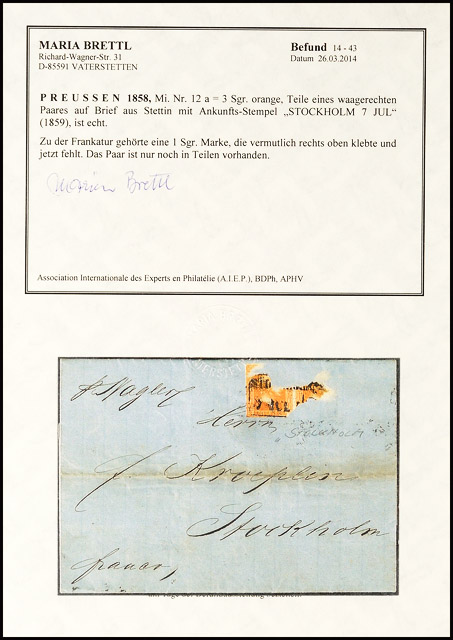 MARIA BRETTL
Richard-Wagner-Str. 31
D-85591 VATERSTETTEN
Befund 14 - 43
Datum 26.03.2014
PREUSSEN 1858, Mi. Nr. 12 a = 3 Sgr. orange, Teile eines waagerechten
Paares auf Brief aus Stettin mit Ankunfts-Stempel „STOCKHOLM 7 JUL“
(1859), ist echt.
Zu der Frankatur gehörte eine 1 Sgr. Marke, die vermutlich rechts oben klebte und
jetzt fehlt. Das Paar ist nur noch in Teilen vorhanden.
Maria Brettl
Association Internationale des Experts en Philatélie (A.I.E.P.), BDPh, APHV
7 JUL
Herrn
STOCKHOLM
J. Kroeplin
Stockholm
franco,